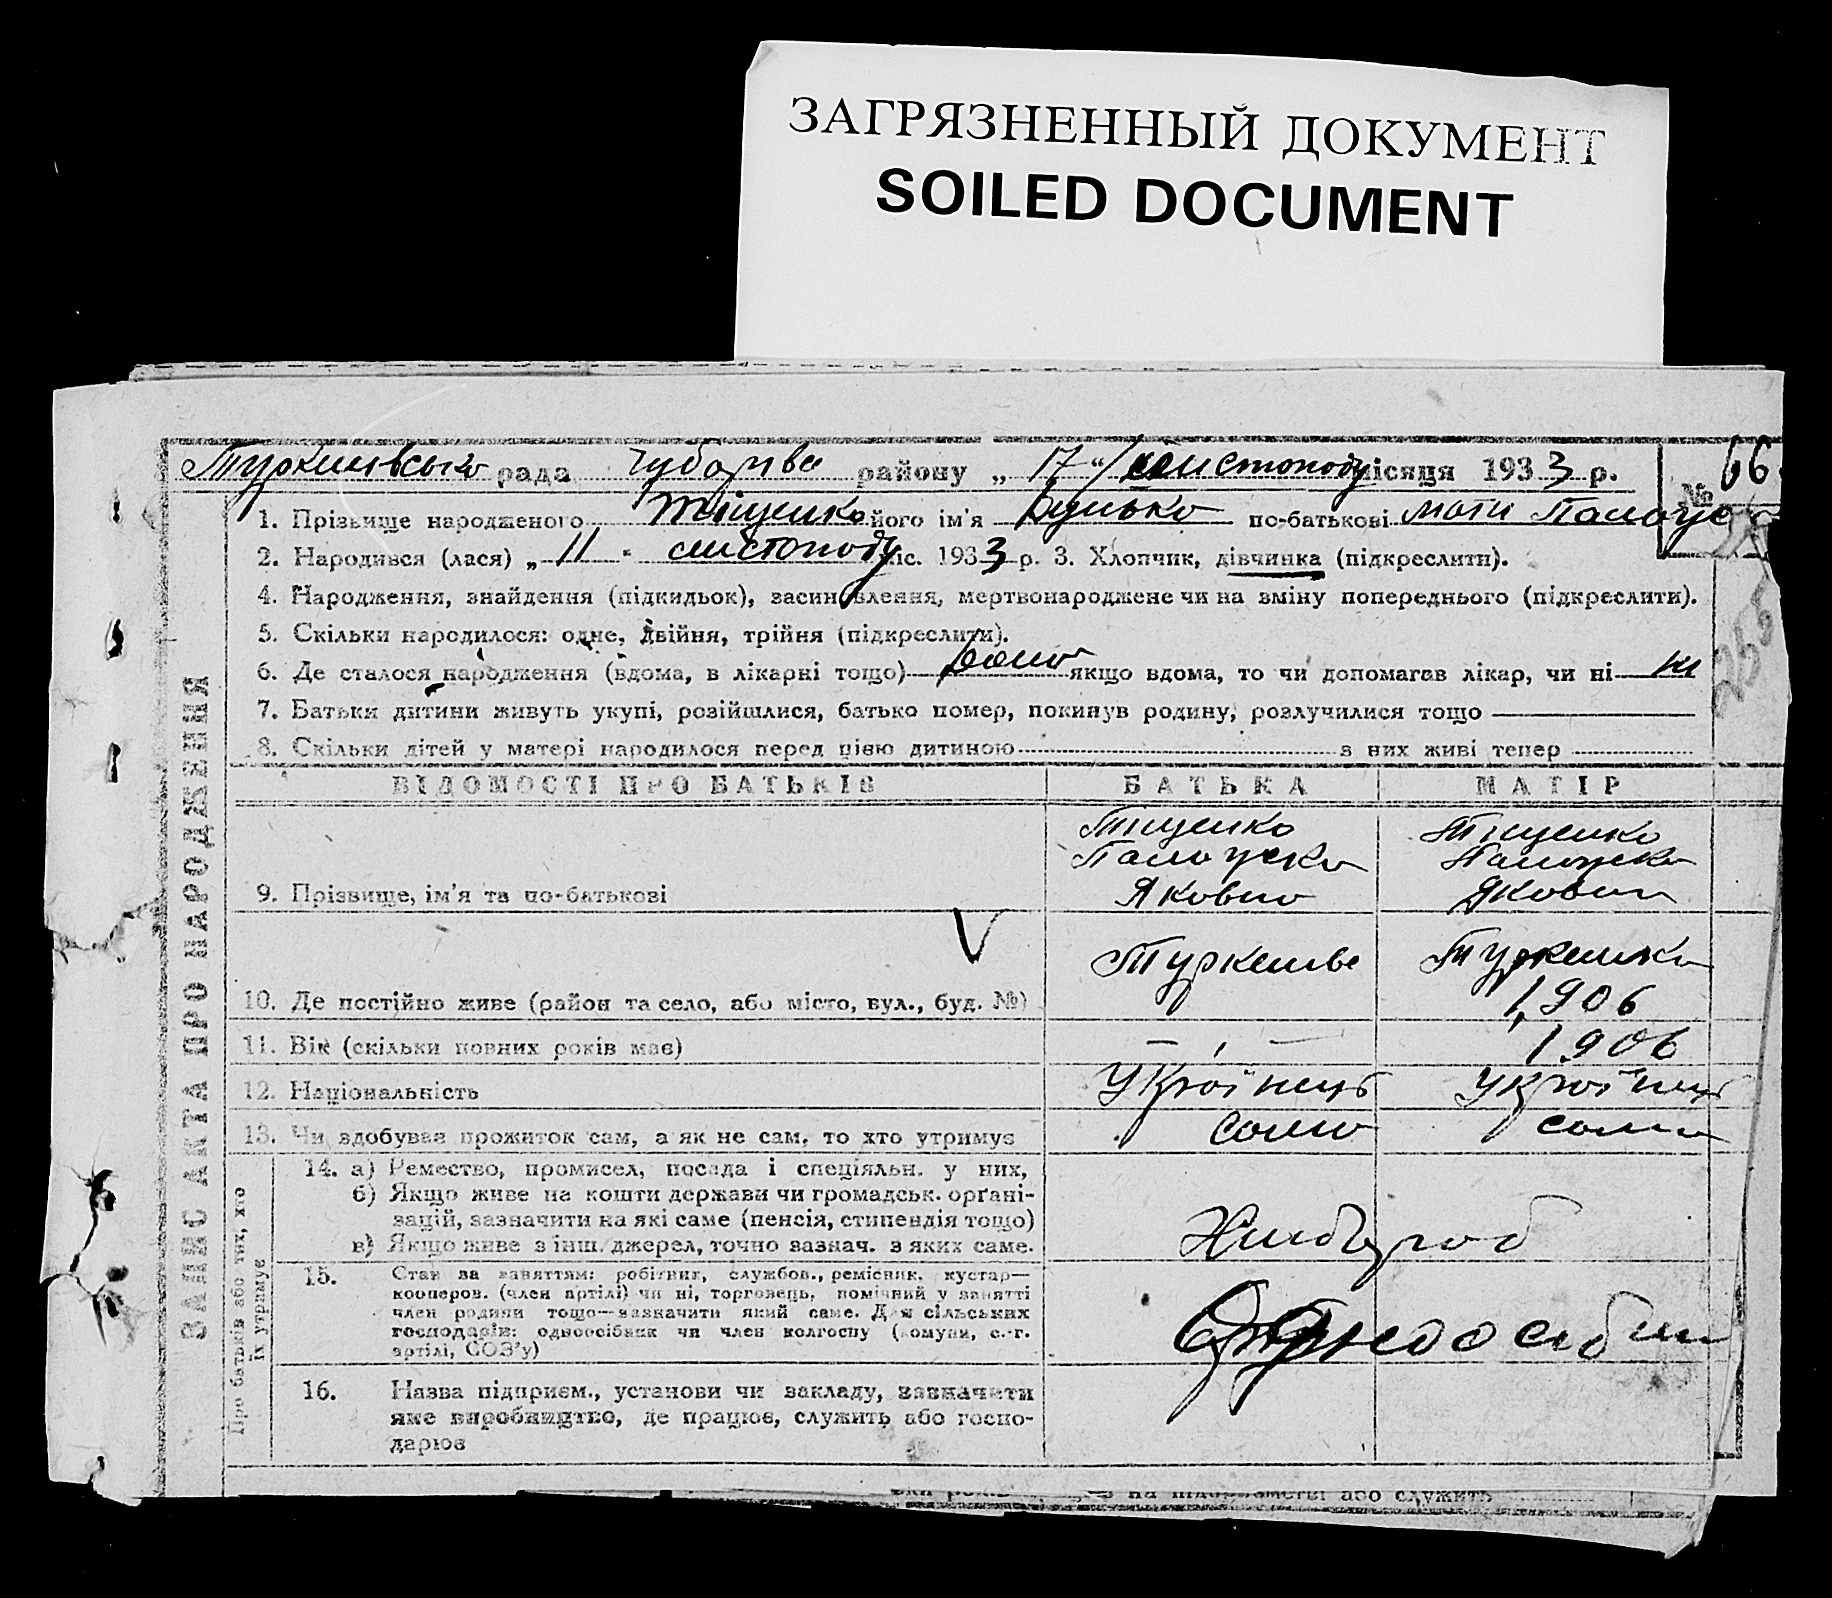 ЗАГРЯЗНЕННЫЙ ДОКУМЕНТ
SOILED DOCUMENT
рада району „ 17 “ листопаду місяця 1933 р. № 66
1. Прізвище народженого Тіщенко його ім'я по-батькові мати
2. Народився (лася) „ 11 " листопаду міс. 1933 р. 3. Хлопчик, дівчинка (підкреслити).
4. Народження, знайдення (підкидьок), засиновлення, мертвонароджене чи на зміну попереднього (підкреслити).
5. Скільки народилося: одне, двійня, трійня (підкреслити).
6. Де сталося народження (вдома, в лікарні тощо) якщо вдома, то чи допомагав лікар, чи ні ні
7. Батьки дитини живуть укупі, розійшлися, батько помер, покинув родину, розлучилися тощо
8. Скільки дітей у матері народилося перед цією дитиною з них живі тепер
ЗАПИС АКТА ПРО НАРОДЖЕННЯ
ВІДОМОСТІ ПРО БАТЬКІВ БАТЬКА МАТІР
Тіщенко Тіщенко
9. Прізвище, ім'я та по-батькові Яковна Яковна
10. Де постійно живе (район та село, або місто, вул., буд. №) 1906
11. Вік (скільки повних років має) — — 1906
12. Національність Українець Українець
13. Чи здобував прожиток сам, а як не сам, то хто утримує сама сама
Про батьків або тих, хто
їх утримує
14. а) Ремество, промисел, посада і спеціяльн. у них,
б) Якщо живе на кошти держави чи громадськ. орґані-
зацій, зазначити на які саме (пенсія, стипендія тощо)
в) Якщо живе з інш. джерел, точно зазнач. з яких саме. Хлібороб
15. Стан за заняттям: робітник, службов., ремісник, кустар—
кооперов. (член артілі) чи ні, торговець, помічний у занятті
член родини тощо—зазначити який саме. Для сільських
господарів: одноосібник чи член колгоспу (комуни, с.-г.
артілі, СОЗ'у)
16. Назва підприєм., установи чи закладу, зазначити
яке виробництво, де працює, служить або госпо-
дарює